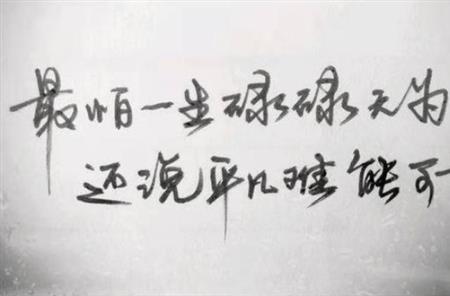 最怕一生碌碌无为
还说平凡难能可